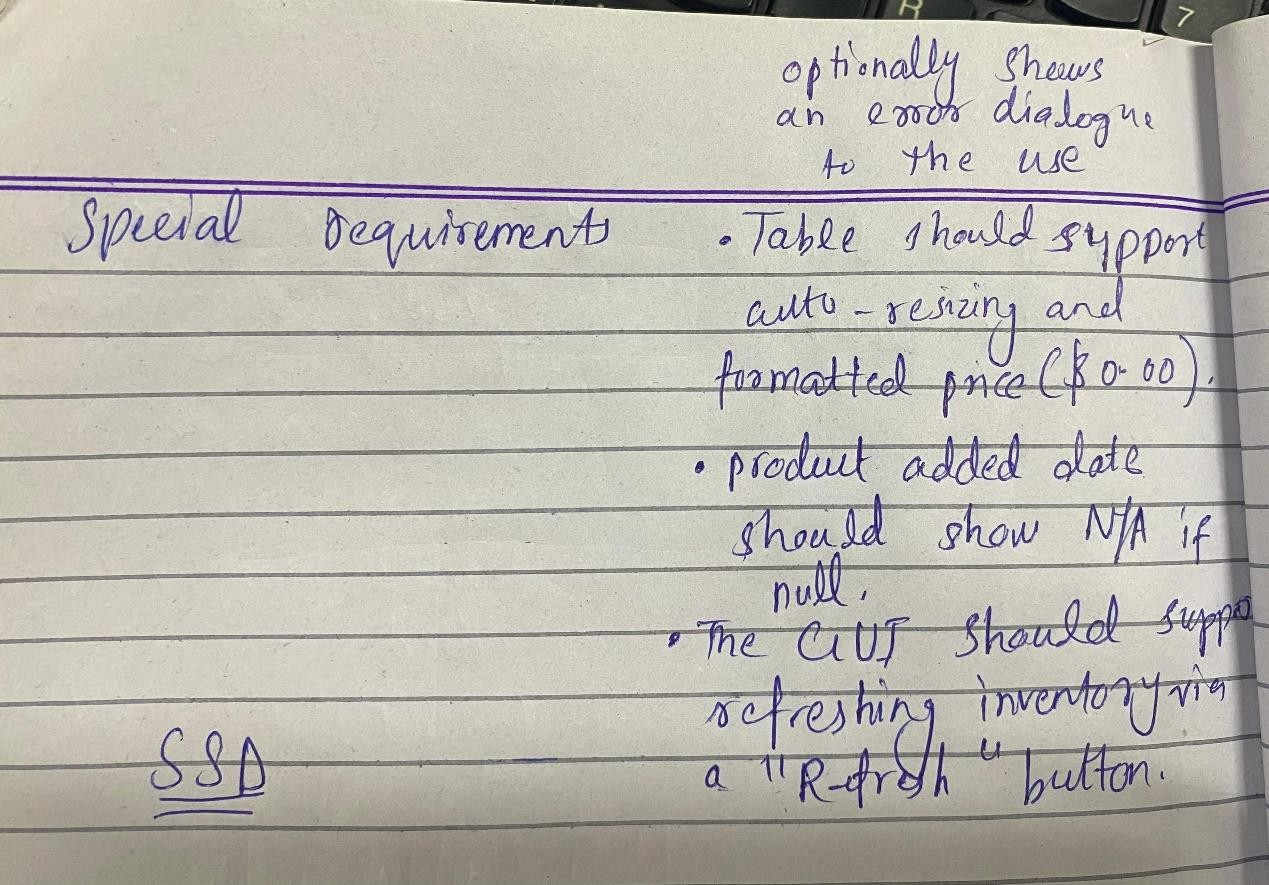 optionally shows
an error dialogue
to the use
Special requirements
• Table should support
auto-resizing and
formatted price ($0.00).
• product added date
should show N/A if
null.
• The GUI should suppo
refreshing inventory via
a "Refresh" button.
SSD
R
7